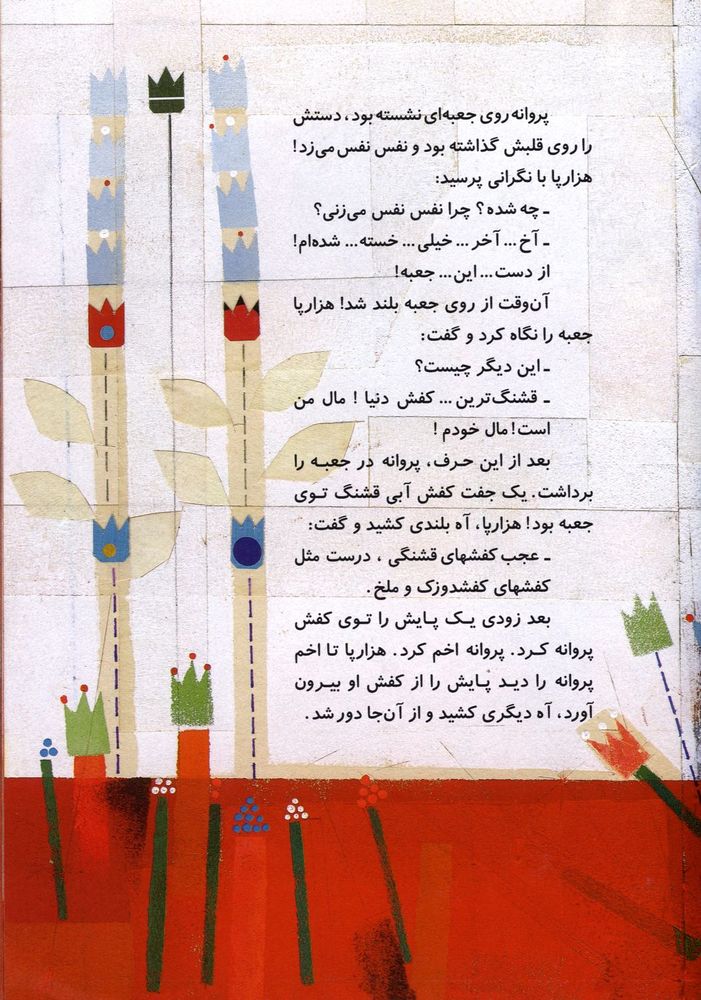 پروانه روی جعبه‌ای نشسته بود، دستش
را روی قلبش گذاشته بود و نفس نفس می‌زد!
هزارپا با نگرانی پرسید:
ـ چه شده؟ چرا نفس نفس می‌زنی؟
ـ آخ... آخر... خیلی... خسته... شده‌ام!
از دست... این... جعبه!
آن‌وقت از روی جعبه بلند شد! هزارپا
جعبه را نگاه کرد و گفت:
ـ این دیگر چیست؟
ـ قشنگ‌ترین... کفش دنیا ! مال من
است! مال خودم !
بعد از این حرف، پروانه در جعبه را
برداشت. یک جفت کفش آبی قشنگ توی
جعبه بود! هزارپا، آه بلندی کشید و گفت:
ـ عجب کفشهای قشنگی ، درست مثل
کفشهای کفشدوزک و ملخ.
بعد زودی یک پایش را توی کفش
پروانه کرد. پروانه اخم کرد. هزارپا تا اخم
پروانه را دید پایش را از کفش او بیرون
آورد، آه دیگری کشید و از آن‌جا دور شد.